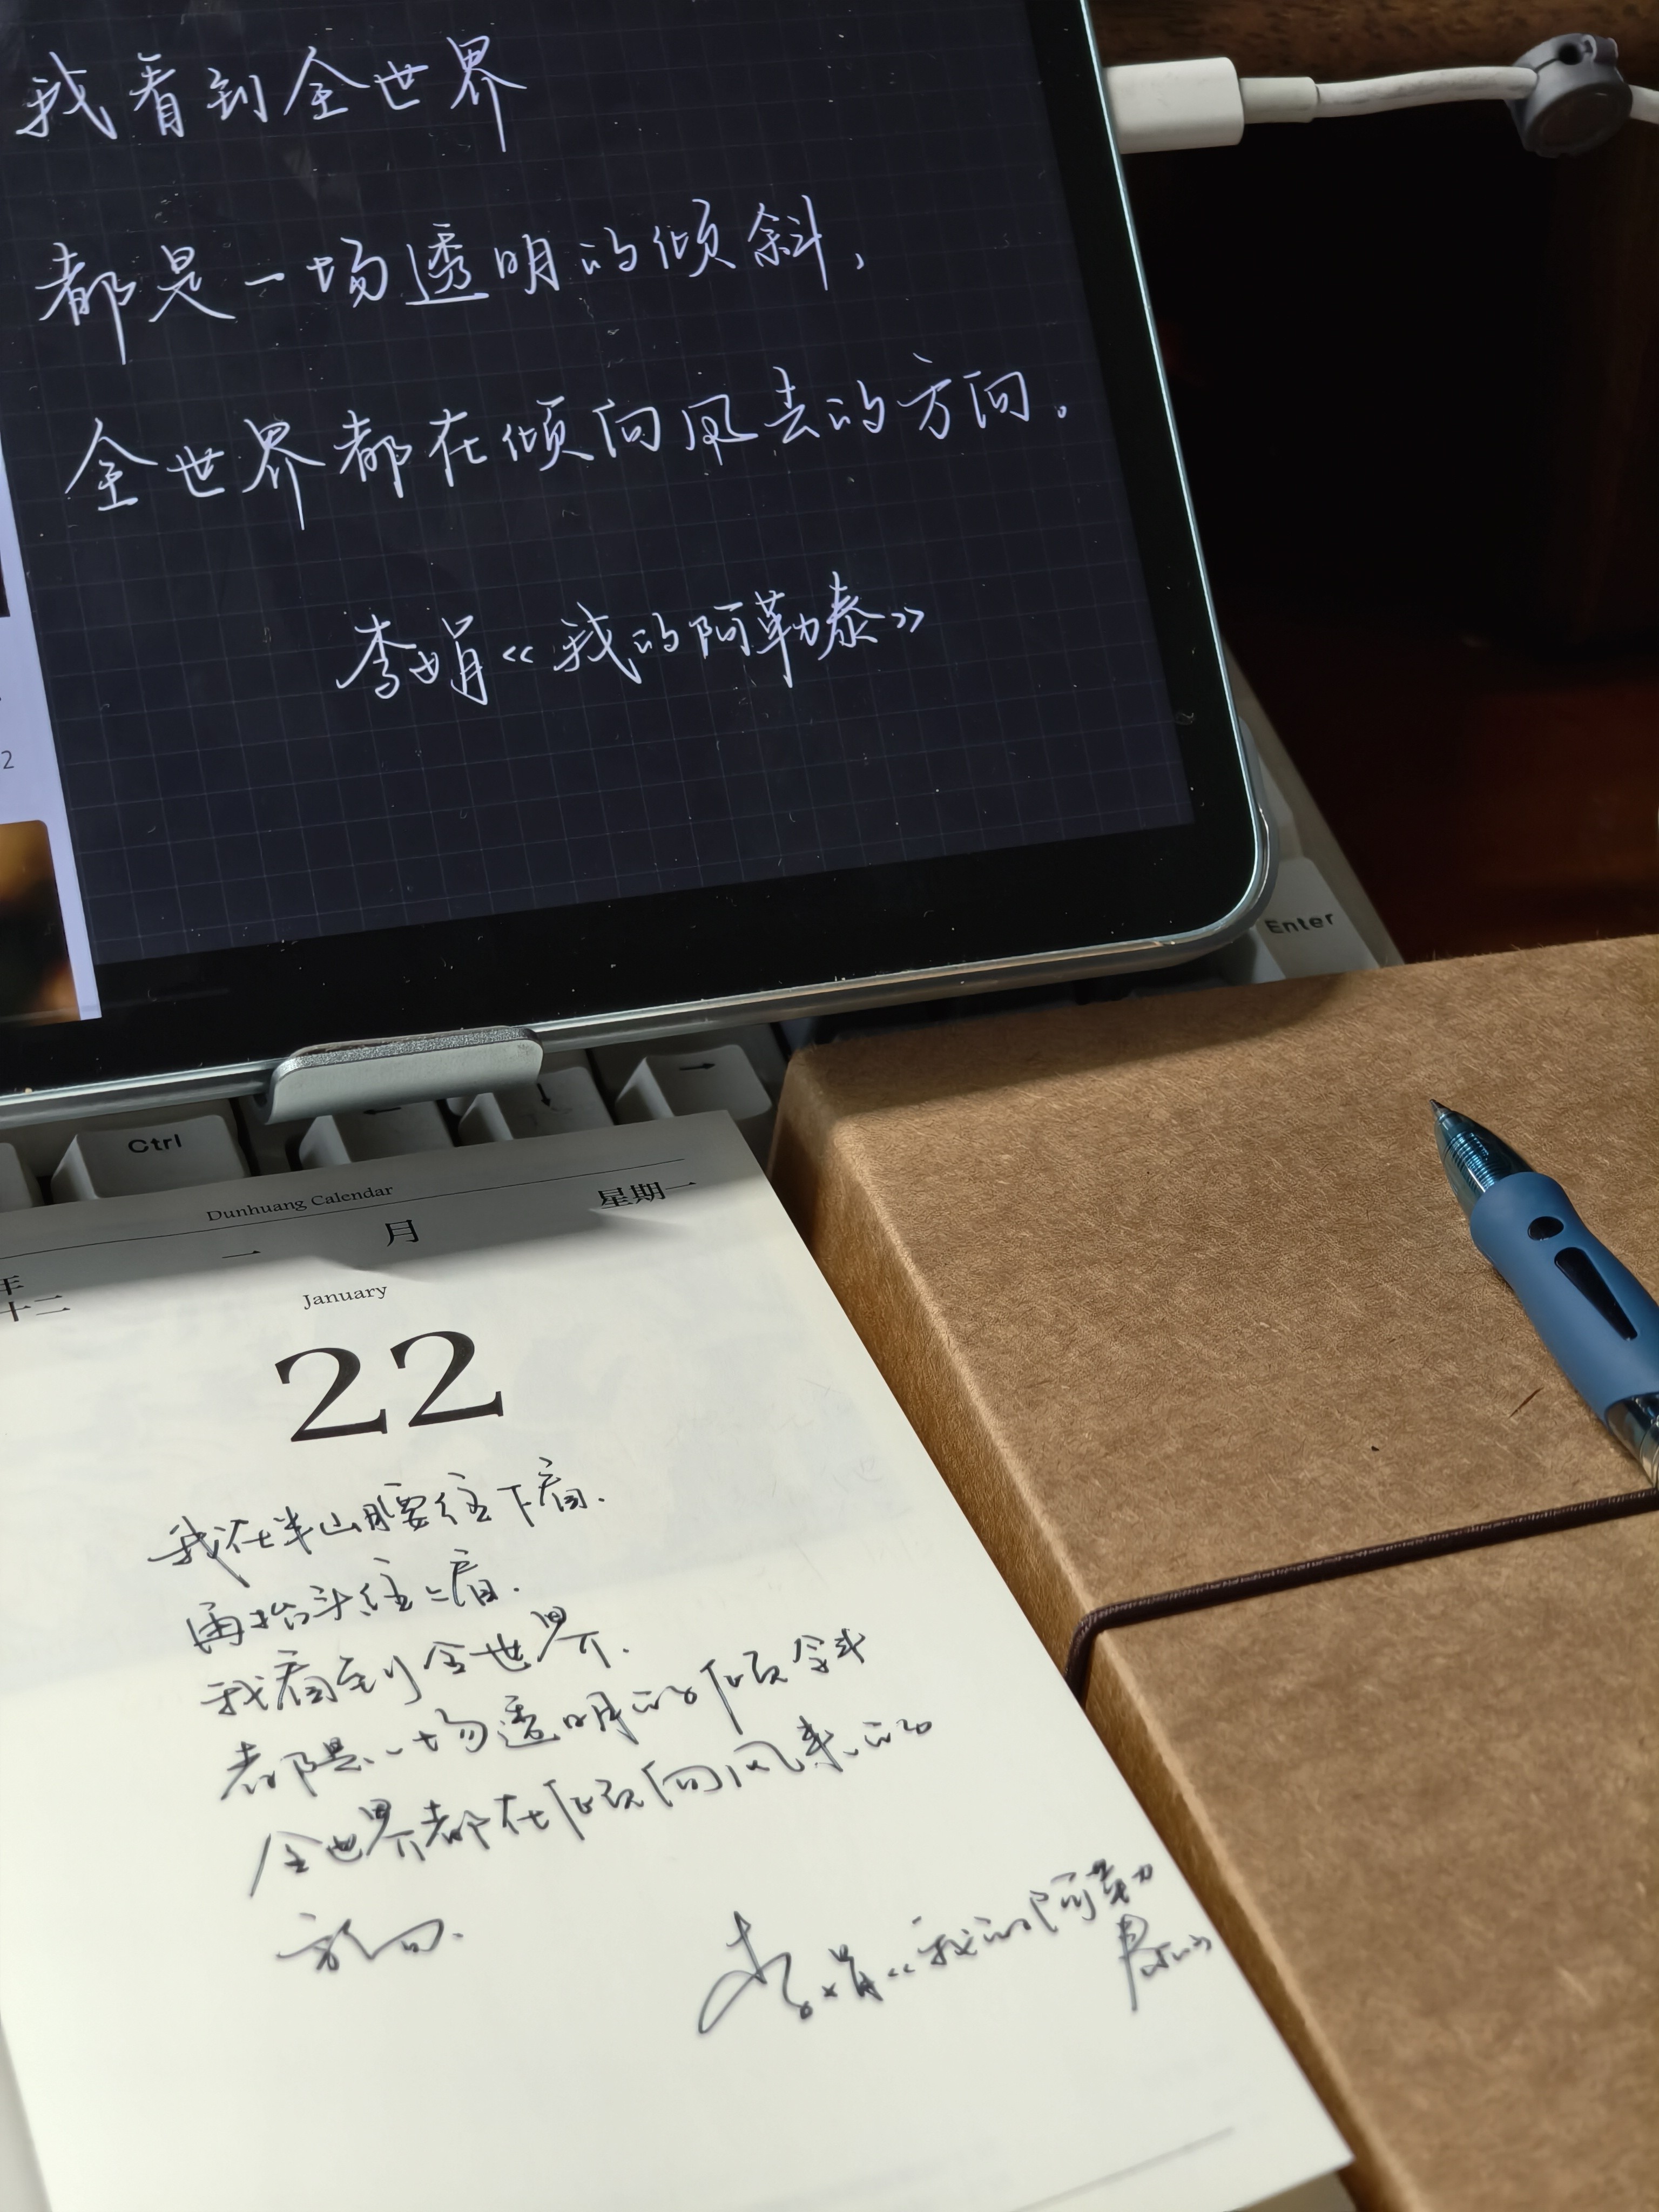 我看到全世界
都是一场透明的倾斜，
全世界都在倾向风去的方向。
李娟《我的阿勒泰》
2
Enter
Ctrl
←
↓
→
Dunhuang Calendar
星期一
一月
年
十二
January
22
我在半山腰往下看.
再抬头往上看.
我看到全世界.
都是一场透明的倾斜
全世界都在倾向风来的
方向.
李娟《我的阿勒
泰》